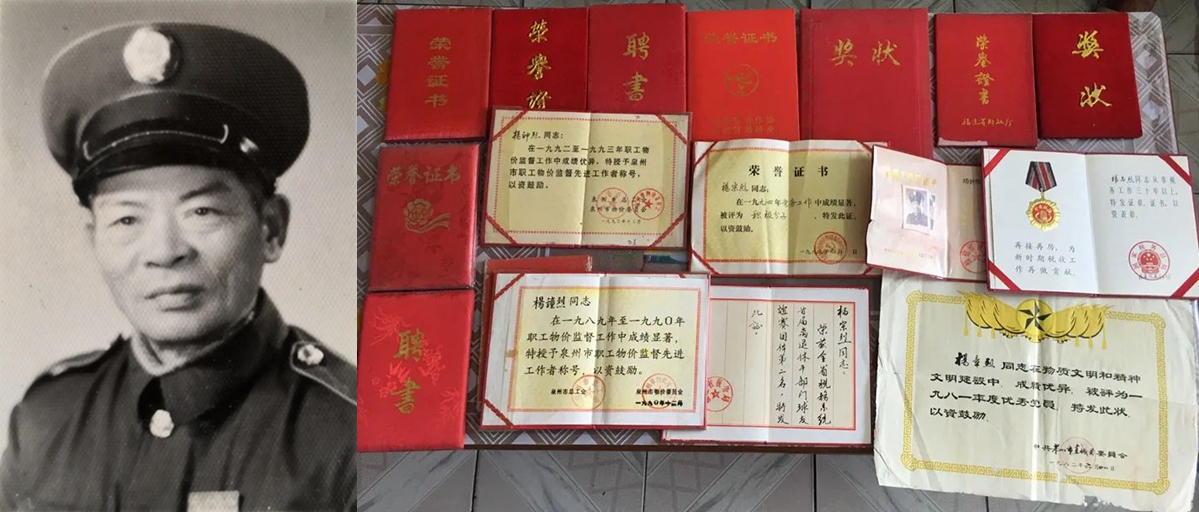 荣誉证书
荣誉证
聘书
荣誉证书
奖状
荣誉證書
福建省财政厅
奖状
荣誉证书
聘书
同志:
在一九九二至一九九三年职工物
价监督工作中成绩优异,特授予泉州
市职工物价监督先进工作者称号,
以资鼓励。
泉州市物价委员会
荣誉证书
杨宗烈同志,
在一九 四年 工作中成绩显著,
被评为 积极分子 ,特发此证,
以资鼓励。
同志从事税
务工作三十年以上,
特发证章、证书,以
资表彰。
再接再厉,为
新时期税收工
作再做贡献。
同志
在一九八九年至一九九〇年
职工物价监督工作中成绩显著,
特授予泉州市职工物价监督先进
工作者称号,以资鼓励。
泉州市总工会
泉州市物价委员会
一九九〇年十二月
杨宗烈同志:
荣获全省税务系统
首届离退休干部门球友
谊赛团体第二名,特发
此证
同志在物质文明和精神
文明建设中,成绩优异,被评为一
九八一年度优秀党员,特发此状,
以资鼓励。